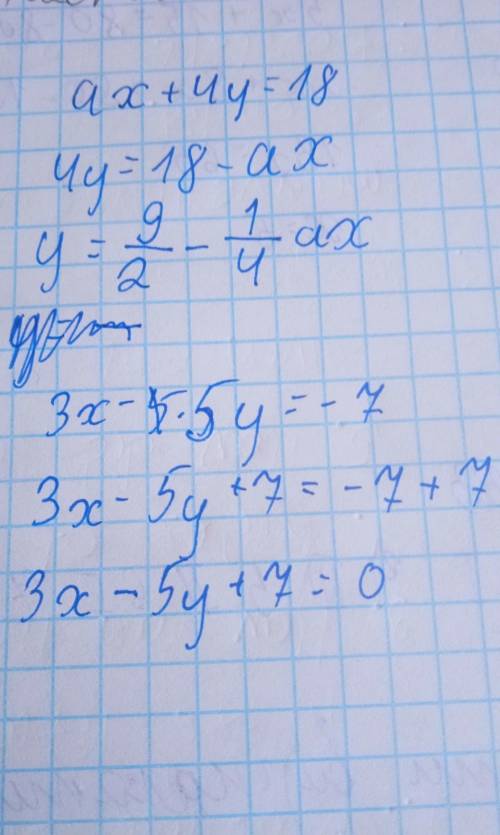 ax + 4y = 18
4y = 18 - ax
y = 9/2 - 1/4 ax
3x - 5y = -7
3x - 5y + 7 = -7 + 7
3x - 5y + 7 = 0